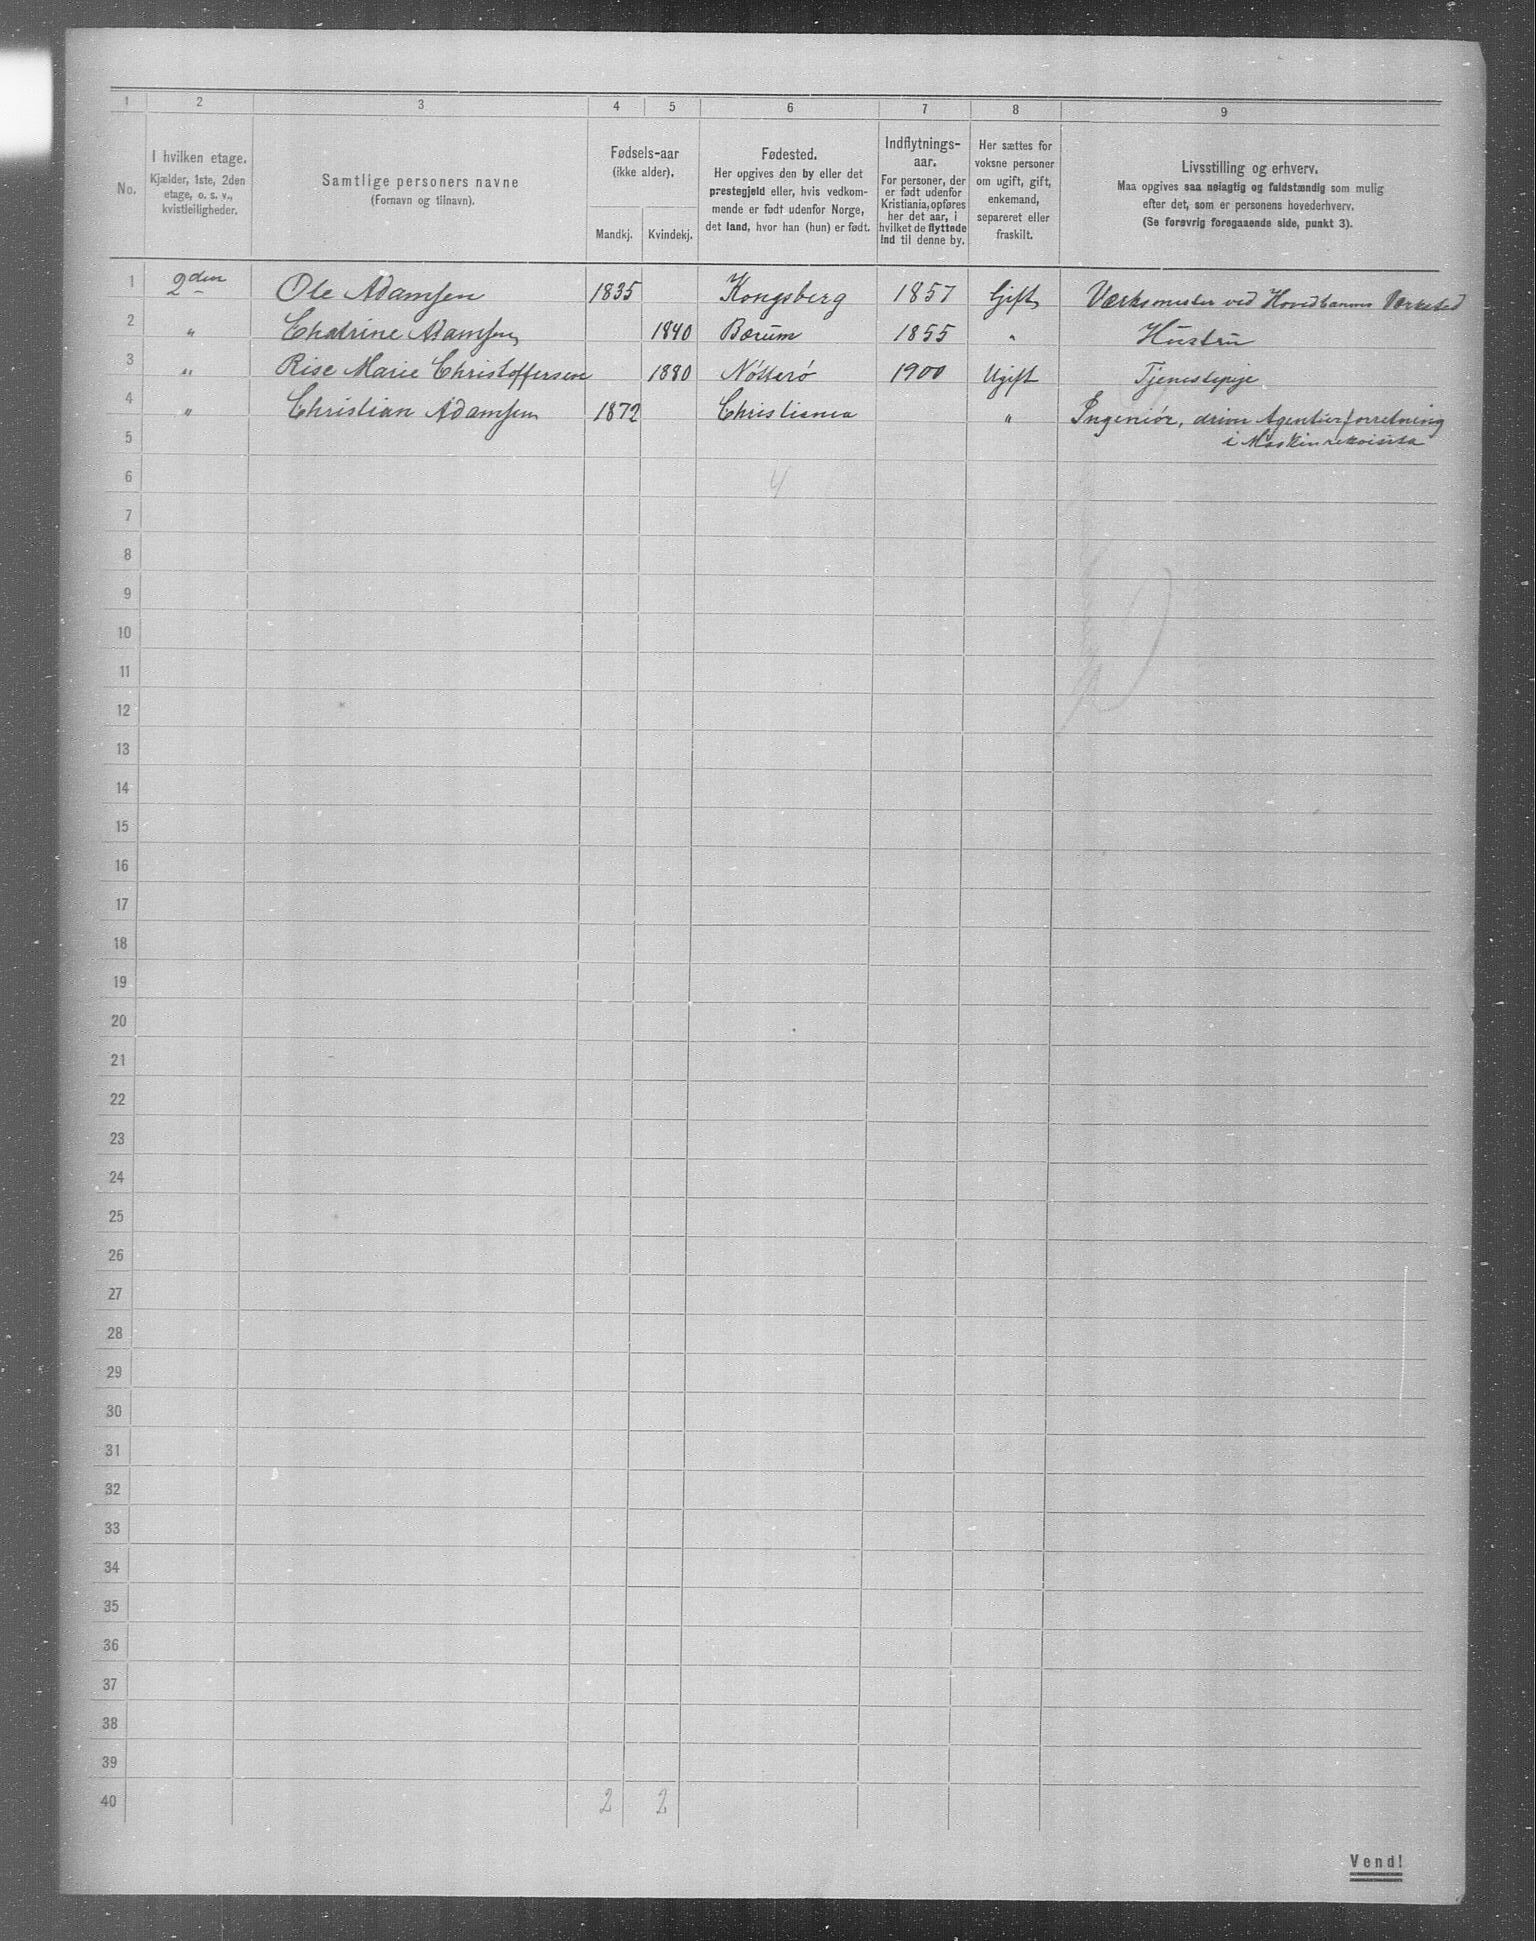 1 2 3 4 5 6 7 8 9
No.
I hvilken etage.
Kjælder, 1ste, 2den
etage, o. s. v.,
kvistleiligheder.
Samtlige personers navne
(Fornavn og tilnavn).
Fødsels-aar
(ikke alder).
Mandkj. Kvindekj.
Fødested.
Her opgives den by eller det
prestegjeld eller, hvis vedkom-
mende er født udenfor Norge,
det land, hvor han (hun) er født.
Indflytnings-
aar.
For personer, der
er født udenfor
Kristiania, opføres
her det aar, i
hvilket de flyttede
ind til denne by.
Her sættes for
voksne personer
om ugift, gift,
enkemand,
separeret eller
fraskilt.
Livsstilling og erhverv.
Maa opgives saa nøiagtig og fuldstændig som mulig
efter det, som er personens hovederhverv.
(Se forøvrig foregaaende side, punkt 3).
1 2den Ole Adamsen 1835 Kongsberg 1857 Gift Værksmester ved Hovedbanens Værksted
2 " Chatrine Adamsen 1840 Bærum 1855 " Hustru
3 " Rise Marie Christoffersen 1880 Nötterö 1900 Ugift Tjenestepige
4 " Christian Adamsen 1872 Christiania " Ingeniör, driver Agenturforretning
5 i Maskinrekvisita
6 4
7
8
9
10
11
12
13
14
15
16
17
18
19
20
21
22
23
24
25
26
27
28
29
30
31
32
33
34
35
36
37
38
39
40 2 2
Vend!